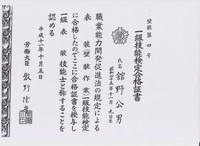 一級技能検定合格証書
氏名
舘野公男
職業能力開発促進法の規定による
表装 壁装作業一級技能検定
に合格したのでここに合格証書を授与し
一級表装技能士と称することを
認める
平成十一年十月五日
労働大臣